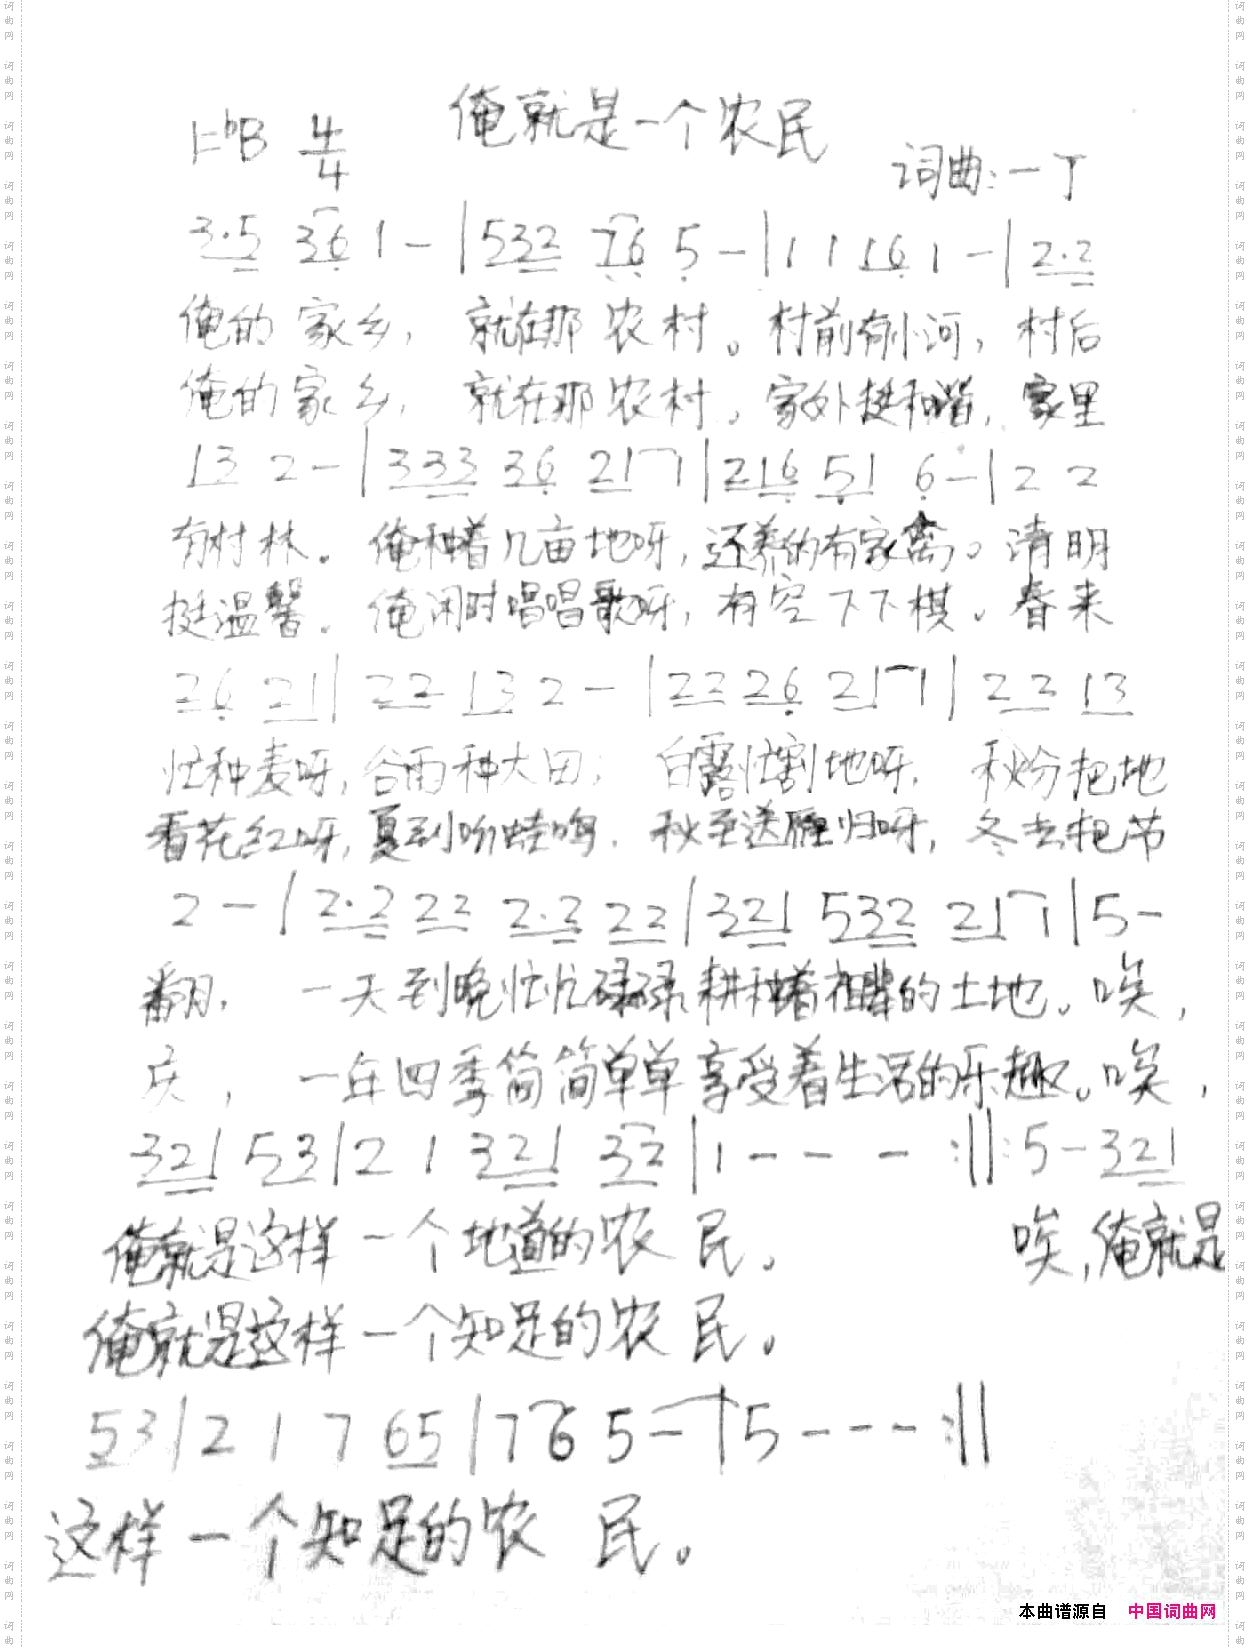 俺就是一个农民
1=bB 4/4
词曲:一丁
3·5 36 1 - | 532 76 5 - | 1 1 16 1 - | 2·2
俺的家乡, 就在那农村。村前有小河, 村后
俺的家乡, 就在那农村。家外挺和谐, 家里
13 2 - | 333 36 21 1 | 216 51 6 - | 2 2
有村林。俺种着几亩地呀, 还养的有家禽。清明
挺温馨。俺闲时唱唱歌呀, 有空下下棋。春来
26 21 | 22 13 2 - | 22 26 21 1 | 22 13
忙种麦呀, 谷雨种大田; 白露忙割地呀, 秋分把地
看花红呀, 夏到听蛙鸣. 秋至送雁归呀, 冬去把节
2 - | 2·2 22 2·2 22 | 321 532 21 1 | 5 -
翻, 一天到晚忙忙碌碌, 耕种着祖辈的土地。唉,
庆, 一年四季简简单单享受着生活的乐趣。唉,
321 53 | 2 1 321 32 | 1 - - - :||: 5 - 321
俺就是这样一个地道的农民。 唉, 俺就是
俺就是这样一个知足的农民。
53 | 2 1 7 65 | 7 6 5 - | 5 - - - :||
这样一个知足的农民。
本曲谱源自 中国词曲网